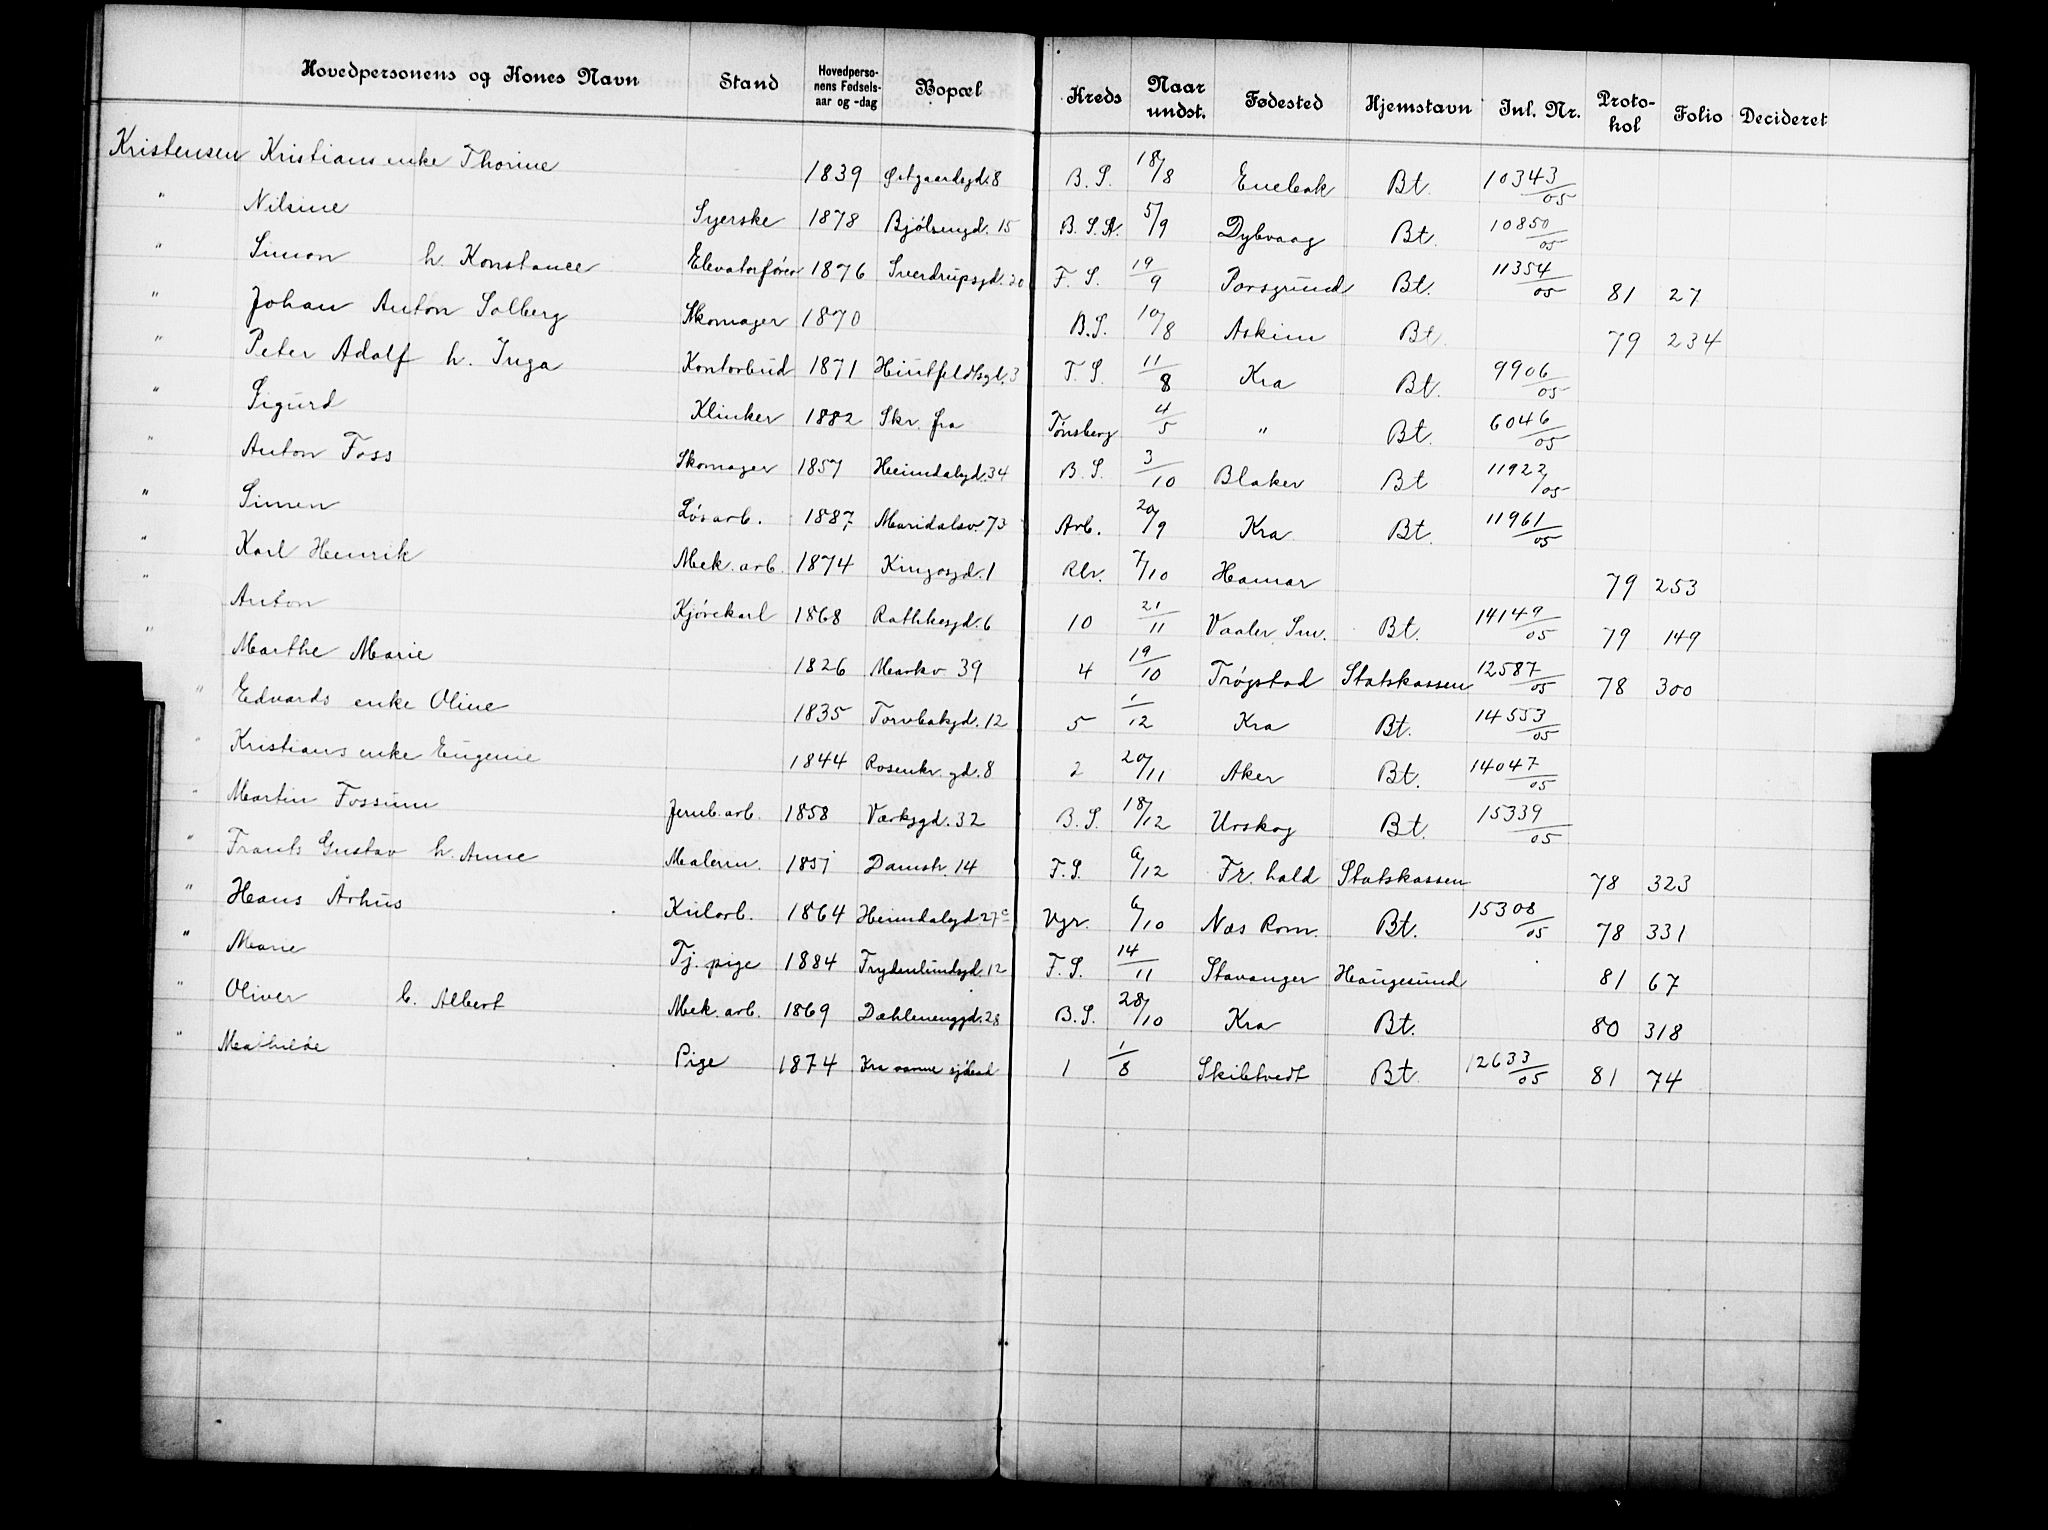 Hovedpersonens og Kones Navn Stand Hovedperso-nens Fødsels-aar og -dag Bopæl Kreds Naar undst. Fødested Hjemstavn Inl. Nr. Proto-kol Folio Decideret
Kristensen Kristians enke Thorine 1839 Østgaardsgd. 8 B. S. 18/8 Enebak Bt. 10343/05
" Nilsine Syerske 1878 Bjølsengd. 15 B. S. A. 5/9 Dybvaag Bt. 10850/05
" Simon h. Konstance Elevatorfører 1876 Sverdrupsgd. 20 F. S. 19/9 Porsgrund Bt. 11354/05 81 27
" Johan Anton Solberg Skomager 1870 B. S. 10/8 Askim Bt. 79 234
" Peter Adolf h. Inga Kontorbud 1871 Huitfeldtsgd. 3 F. S. 11/8 Kra Bt. 9906/05
" Sigurd Klinker 1882 Skr. fra Tønsberg 4/5 " Bt. 6046/05
" Anton Foss Skomager 1857 Heimdalsgd. 34 B. S. 3/10 Blaker Bt 11922/05
" Simen Løsarb. 1887 Maridalsv. 73 Arb. 20/9 Kra Bt. 11961/05
" Karl Henrik Mek. arb. 1874 Kingosgd. 1 7/10 Hamar 79 253
" Anton Kjørekarl 1868 Rathkesgd. 6 10 21/11 Vaaler Sm. Bt. 14149/05 79 149
" Marthe Marie 1826 Markv 39 4 19/10 Trøgstad Statskassen 12587/05 78 300
" Edvards enke Oline 1835 Torvbakgd. 12 5 1/12 Kra Bt. 14553/05
" Kristians enke Eugenie 1844 Rosenkr. gd. 8 2 20/11 Aker Bt. 14047/05
" Martin Fossum Jernb. arb. 1858 Værksgd. 32 B. S. 18/12 Urskog Bt. 15339/05
" Frants Gustav h. Anne Malerm. 1851 Damstr. 14 F. S. 6/12 Fr. hald Statskassen 78 323
" Hans Århus Kularb. 1864 Heimdalsgd. 27c Vgr. 6/10 Næs Rom. Bt. 15308/05 78 331
" Marie Tj. pige 1884 Frydenlundsgd. 12 F. S. 14/11 Stavanger Haugesund 81 67
" Oliver h. Albert Mek. arb. 1869 Dæhlenenggd. 28 B. S. 28/10 Kra Bt. 80 318
" Mathilde Pige 1874 Kra varme sjøbad 1 1/8 Skibtvedt Bt. 12633/05 81 74